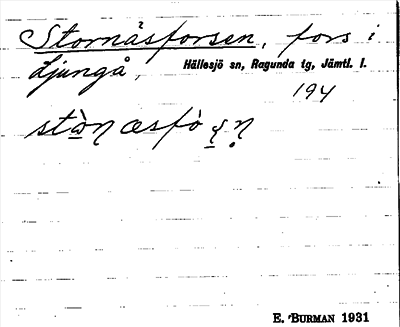 Stornäsforsen, fors i
Ljungå, Hällesjö sn, Ragunda tg, Jämtl. l.
194
E. BURMAN 1931